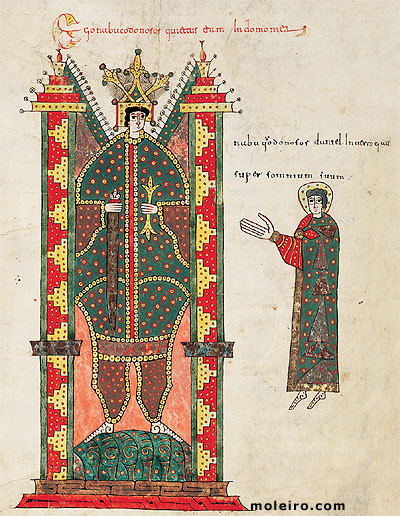 Ego nabucodonosor quietus eram In domo mea
nabuqodonosor daniel Interrogat
super somnium suum
moleiro.com